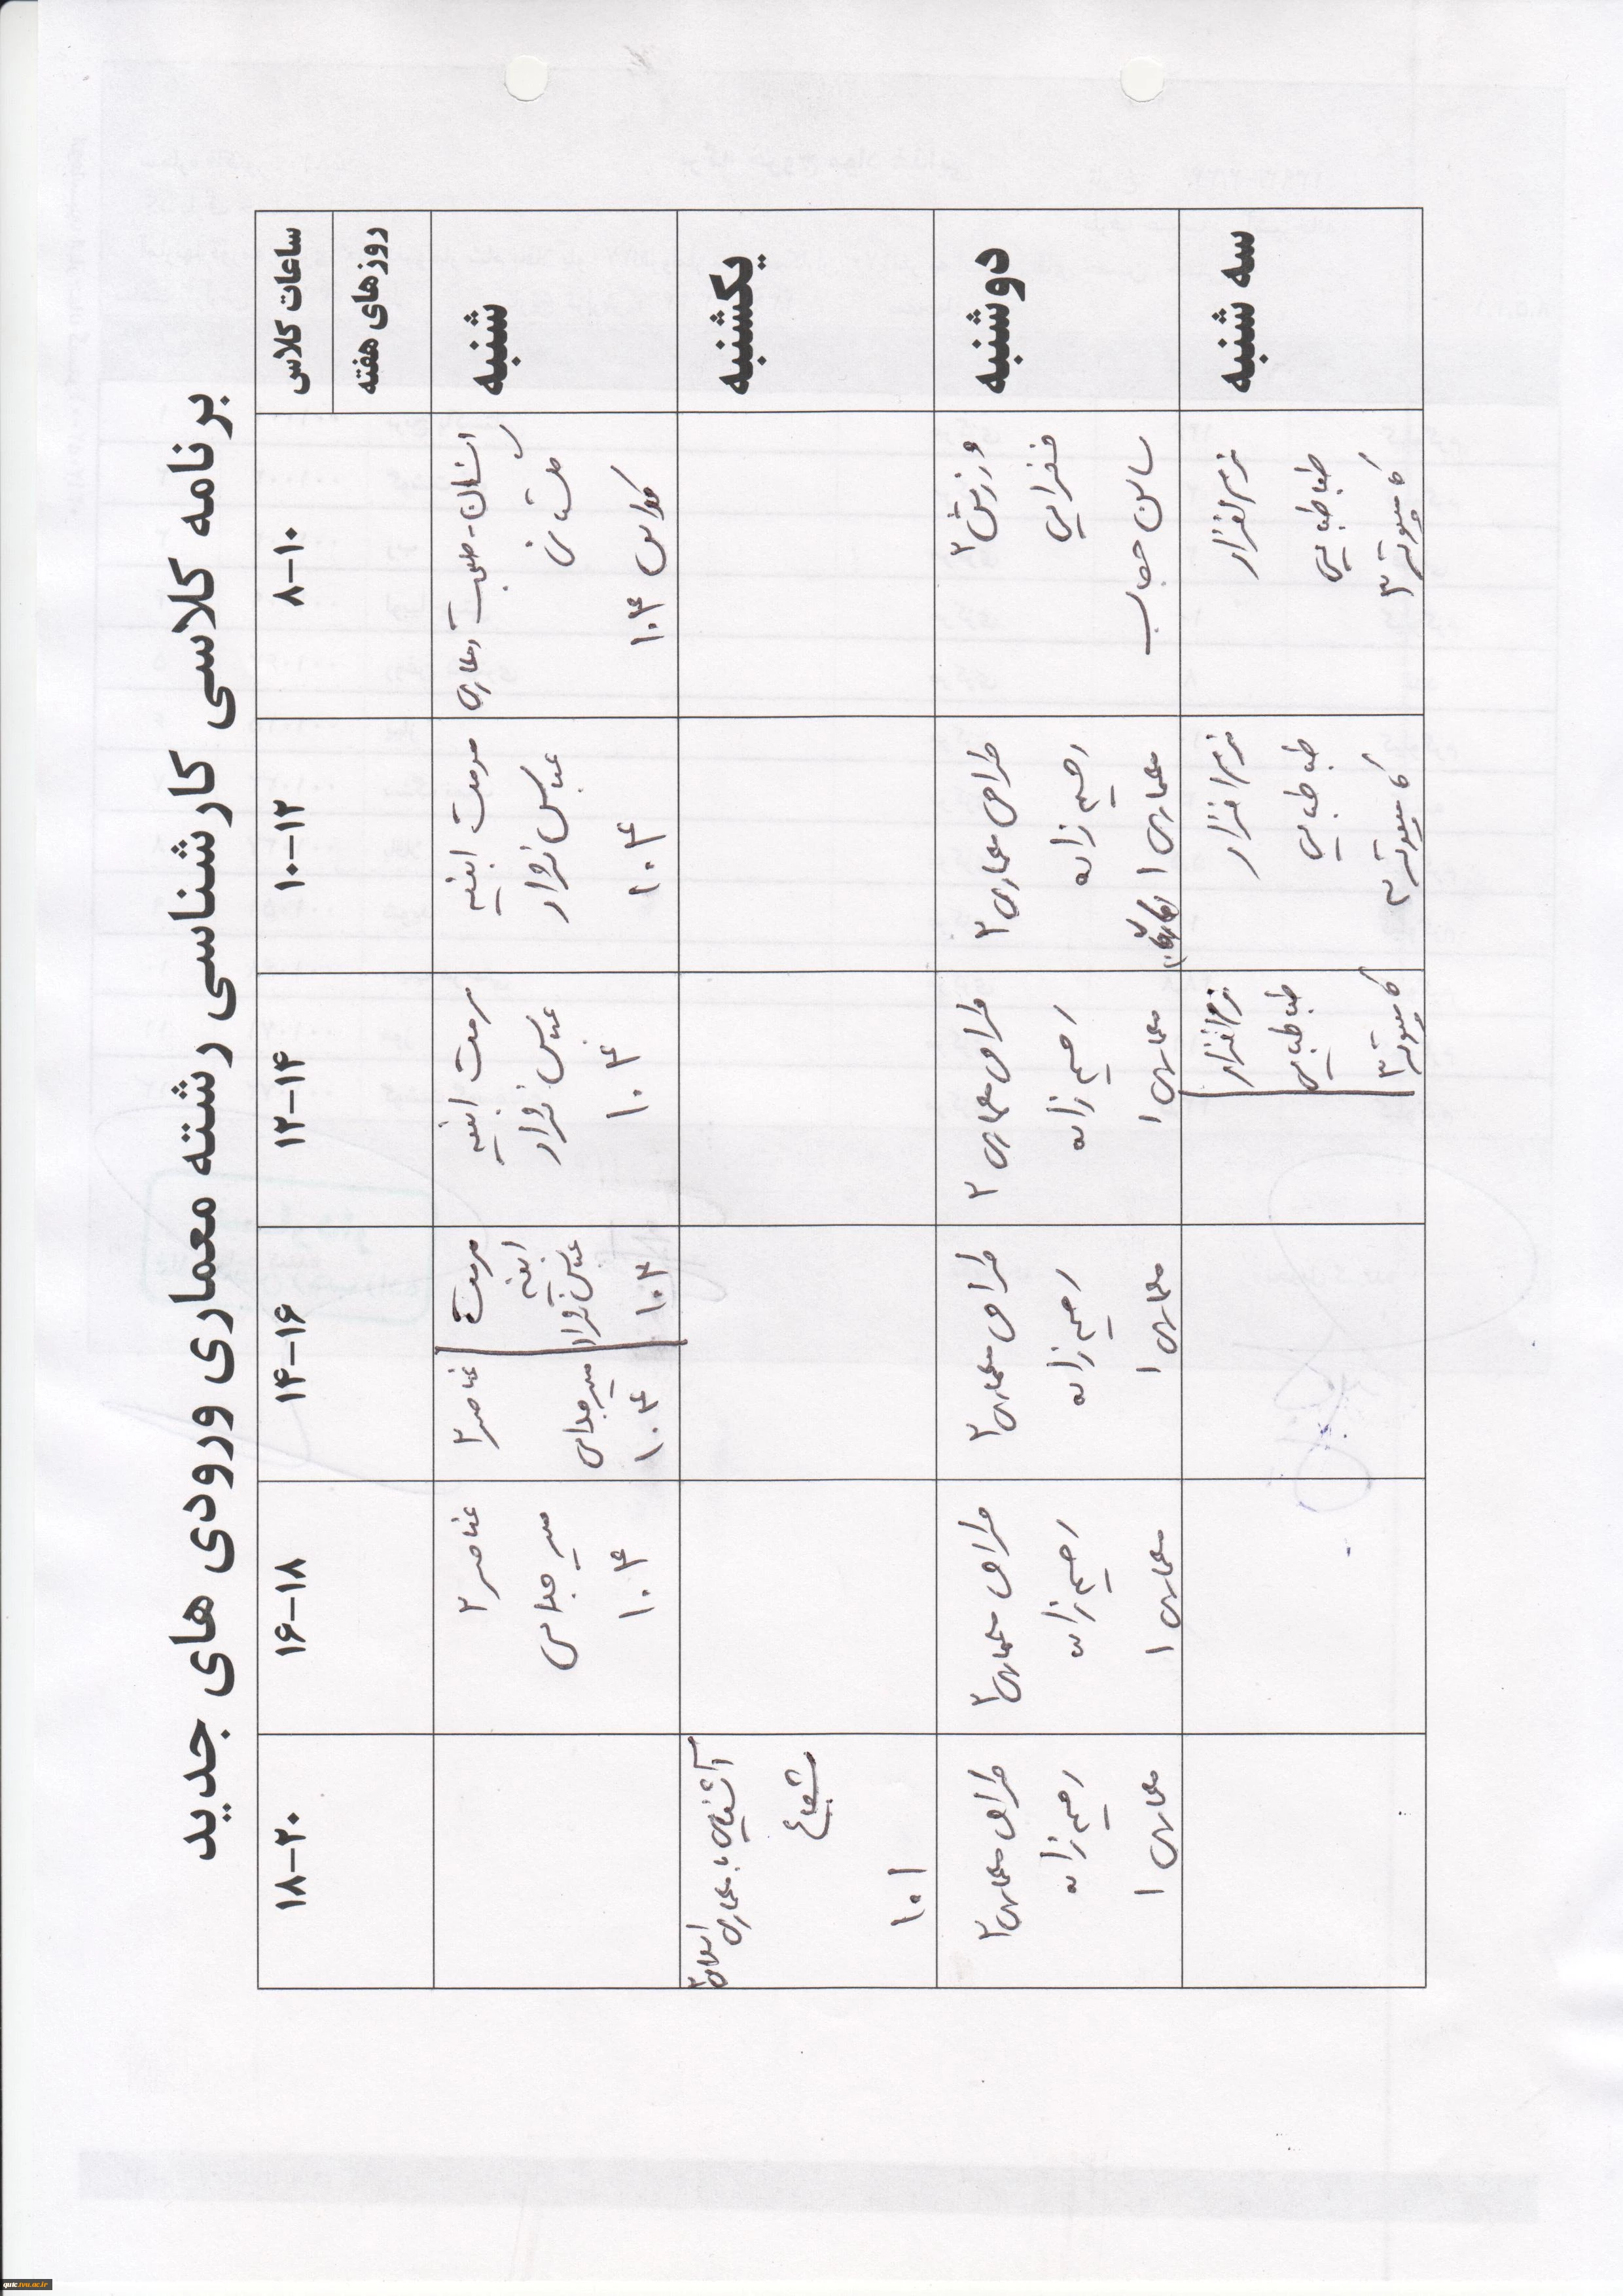 برنامه کلاسی کارشناسی رشته معماری ورودی های جدید
ساعات کلاس
روزهای هفته
۸-۱۰
۱۰-۱۲
۱۲-۱۴
۱۴-۱۶
۱۶-۱۸
۱۸-۲۰
شنبه
انسان - طبیعت معماری
گلستانی
کلاس ۱۰۴
مرمت ابنیه
عباس نژاد
۱۰۴
مرمت ابنیه
عباس نژاد
۱۰۴
مرمت
ابنیه
عباس نژاد
۱۰۴
عناصر ۲
۱۰۴
عناصر ۲
۱۰۴
یکشنبه
آشنایی با معماری اسلامی ۲
شعاع
۱۰۱
دوشنبه
ورزش ۲
سالن حجاب
طراحی معماری ۲
رحیم زاده
معماری ۱
طراحی معماری ۲
رحیم زاده
معماری ۱
طراحی معماری ۲
رحیم زاده
معماری ۱
طراحی معماری ۲
رحیم زاده
معماری ۱
طراحی معماری ۲
رحیم زاده
معماری ۱
سه شنبه
نرم افزار
طباطبایی
کامپیوتر ۳
نرم افزار
طباطبایی
کامپیوتر ۳
نرم افزار
طباطبایی
کامپیوتر ۳
quic.tvu.ac.ir